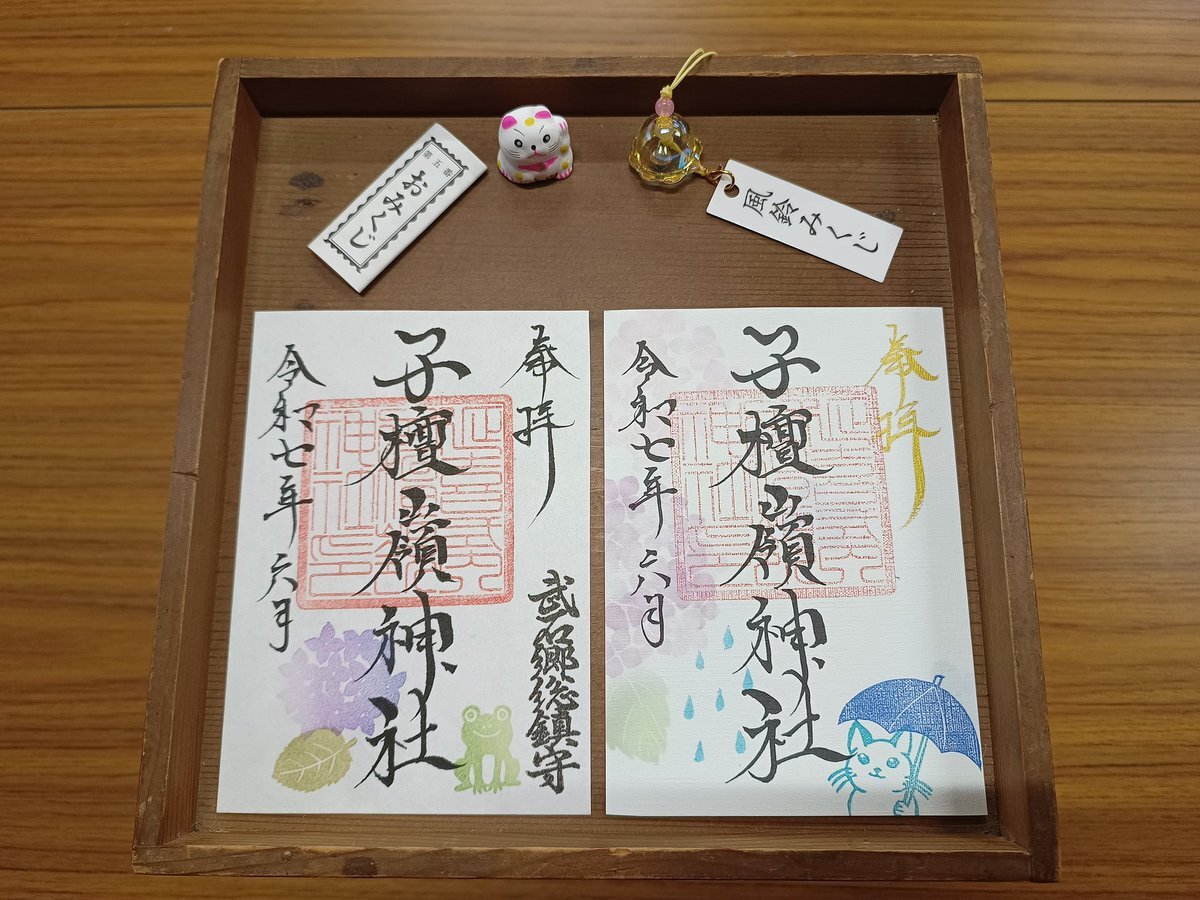 第五番
おみくじ
風鈴みくじ
奉拝
武石郷総鎮守
子檀嶺神社
令和七年六月
奉拝
子檀嶺神社
令和七年六月